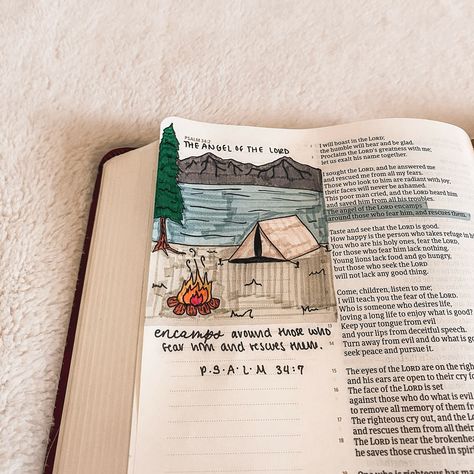 PSALM 34:2
THE ANGEL OF THE LORD
encamps around those who
fear him and rescues them.
P.S.A.L.M 34:7
I will boast in the LORD;
the humble will hear and be glad.
Proclaim the LORD's greatness with me;
let us exalt his name together.
I sought the LORD, and he answered me
and rescued me from all my fears.
Those who look to him are radiant with joy;
their faces will never be ashamed.
This poor man cried, and the LORD heard him
and saved him from all his troubles.
The angel of the LORD encamps
around those who fear him, and rescues them.
Taste and see that the LORD is good.
How happy is the person who takes refuge in
You who are his holy ones, fear the LORD,
for those who fear him lack nothing.
Young lions lack food and go hungry,
but those who seek the LORD
will not lack any good thing.
Come, children, listen to me;
I will teach you the fear of the LORD.
Who is someone who desires life,
loving a long life to enjoy what is good?
13 Keep your tongue from evil
and your lips from deceitful speech.
14 Turn away from evil and do what is go
seek peace and pursue it.
15 The eyes of the LORD are on the right
and his ears are open to their cry fo
16 The face of the LORD is set
against those who do what is evil
to remove all memory of them fr
17 The righteous cry out, and the LO
and rescues them from all their
18 The LORD is near the brokenhe
he saves those crushed in spiri
One who is righteous has ma